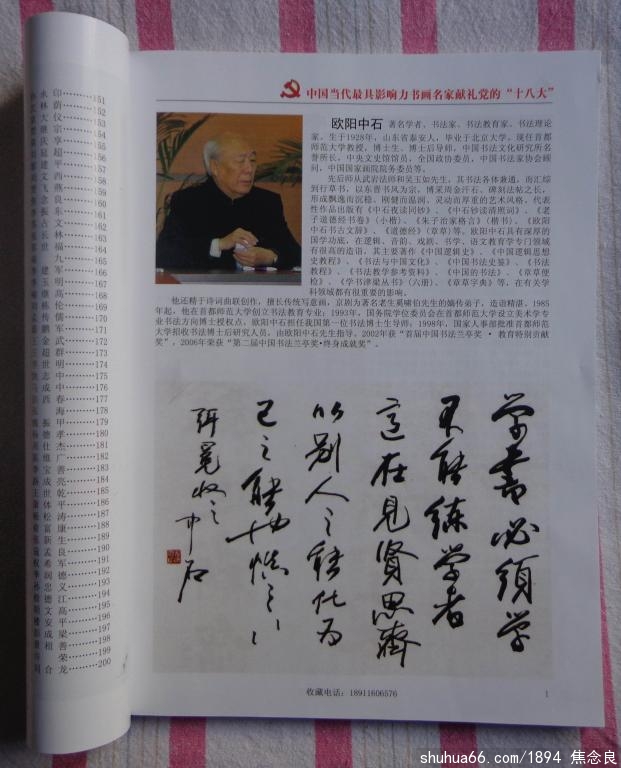 林 荫 152
大 仪 153
继 宗 154
庆 享 155
延 超 156
建 平 157
飞 燕 159
念 良 160
振 东 161
占 文 162
长 林 163
世 福 164
九 165
建 军 166
玉 明 167
继 高 168
栋 伦 169
传 儒 170
鹏 军 171
金 武 172
超 群 173
世 明 174
志 中 175
成 中 176
西 春 177
海 178
振 甲 179
德 孝 180
仕 杰 181
维 广 182
宝 善 183
成 亮 184
世 乾 185
体 平 186
松 涛 187
富 康 188
新 生 189
孟 良 190
希 军 191
润 德 192
忠 义 193
德 江 194
文 高 195
安 平 196
成 梁 197
相 善 198
荣 199
合 龙 200
中国当代最具影响力书画名家献礼党的“十八大”
欧阳中石 著名学者、书法家、书法教育家、书法理论
家。生于1928年，山东省泰安人，毕业于北京大学。现任首都
师范大学教授，博士生、博士后导师，中国书法文化研究所名
誉所长，中央文史馆馆员，全国政协委员，中国书法家协会顾
问，中国国家画院院务委员等。
先后师从武岩法师和吴玉如先生，其书法各体兼通，而汇综
到行草书，以东晋书风为宗，博采周金汗石、碑刻法帖之长，
形成飘逸而沉稳、刚健而温润、灵动而厚重的艺术风格。代表
性作品出版有《中石夜读同钞》、《中石钞读清照词》、《老
子道德经书卷》（小楷）、《朱子治家格言》（楷书）、《欧阳
中石书古文辞》、《道德经》（章草）等。欧阳中石具有深厚的
国学功底，在逻辑、音韵、戏剧、书学、语文教育学专门领域
有很高的造诣，其主要著作《中国逻辑史》、《中国逻辑思想
史教程》、《书法与中国文化》、《中国书法史鉴》、《书法
教程》、《书法教学参考资料》、《中国的书法》、《章草便
检》、《学书津梁丛书》（六册）、《章草字典》等，在有关学
科领域都有很重要的影响。
他还精于诗词曲联创作，擅长传统写意画，京剧为著名老生奚啸伯先生的嫡传弟子，造语精湛。1985
年起，他在首都师范大学创立书法教育专业；1993年，国务院学位委员会在首都师范大学设立美术学专
业书法方向博士授权点，欧阳中石担任我国第一位书法博士生导师；1998年，国家人事部批准首都师范大
学招收书法博士后研究人员，由欧阳中石先生指导。2002年获“首届中国书法兰亭奖·教育特别贡献
奖”，2006年荣获“第二届中国书法兰亭奖·终身成就奖”。
学书必须学
不能练学者
在见贤思齐
以别人之能化为
己之能也慎之
中石
收藏电话：18911606576
1
shuhua66.com/1894 焦念良